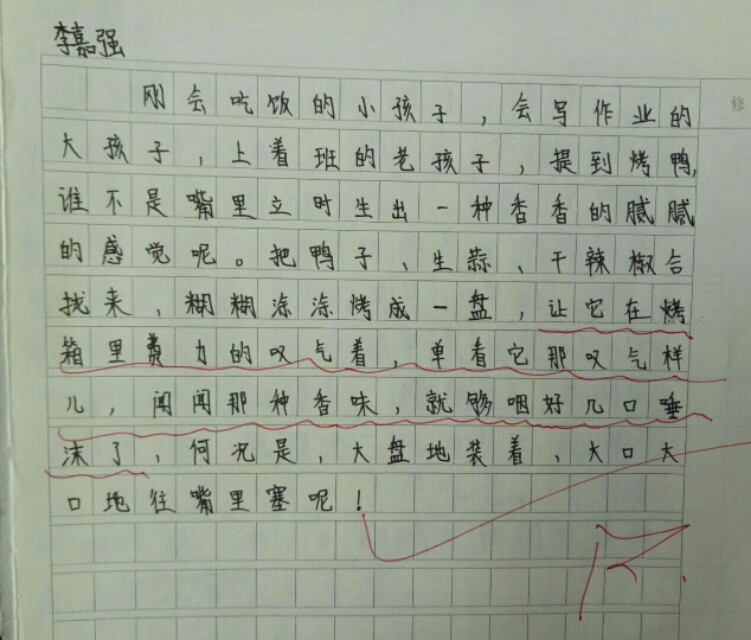 李嘉强
刚会吃饭的小孩子，会写作业的
大孩子，上着班的老孩子，提到烤鸭，
谁不是嘴里立时生出一种香香的腻腻
的感觉呢。把鸭子、生蒜、干辣椒合
找来，糊糊涂涂烤成一盘，让它在烤
箱里费力的叹气着，单看它那叹气样
儿，闻闻那种香味，就够咽好几口唾
沫了，何况是，大盘地装着，大口大
口地往嘴里塞呢！